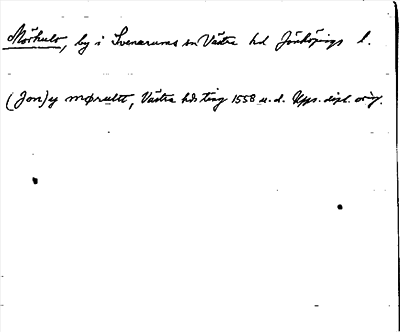 Mörhult, by i Svenarums sn Västra hd Jönköpings l.
(Jon) y mørult, Västra hds ting 1558 u. d. Upps. dipl. orig.